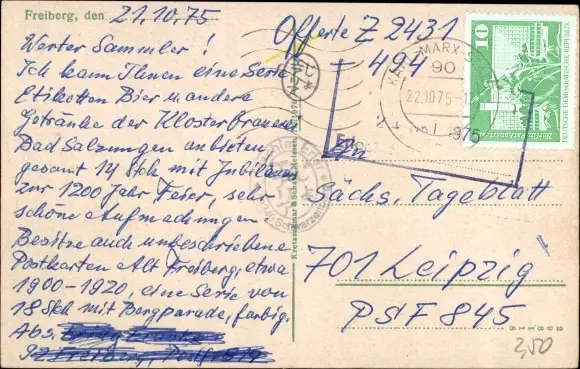 Freiberg, den 21.10.75
Werter Sammler!
Ich kann Ihnen eine Serie
Etiketten Bier u. andere
Getränke der Klosterbrauerei
Bad Salzungen anbieten
gesamt 14 Stck mit Jubiläum
zur 1200 Jahr Feier, sehr
schöne Aufmachungen
Besitze auch unbeschriebene
Postkarten Alt Freiberg, etwa
1900-1920, eine Serie von
18 Stck mit Bergparade, farbig.
Abs.
92 Freiberg,
Offerte Z 2431
- 494
KARL-MARX-STADT
90
22.10.75
10
DEUTSCHE DEMOKRATISCHE REPUBLIK
1975
An
Sächs. Tageblatt
701 Leipzig
PSF 845
2,50